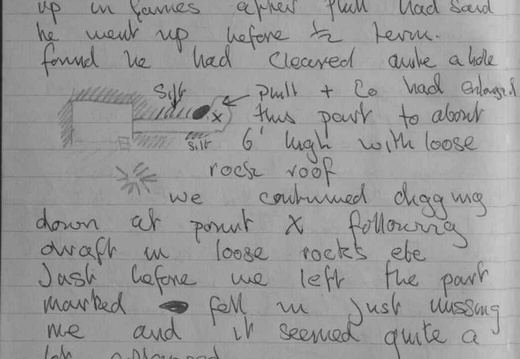 he went up before ½ term.
found he had cleared quite a hole
Silt
Phill + Co had enlarged
this part to about
X
6' high with loose
Silt
rock roof
we continued digging
down at point X following
draft in loose rocks etc
Just before we left the part
marked fell in just missing
me and it seemed quite a